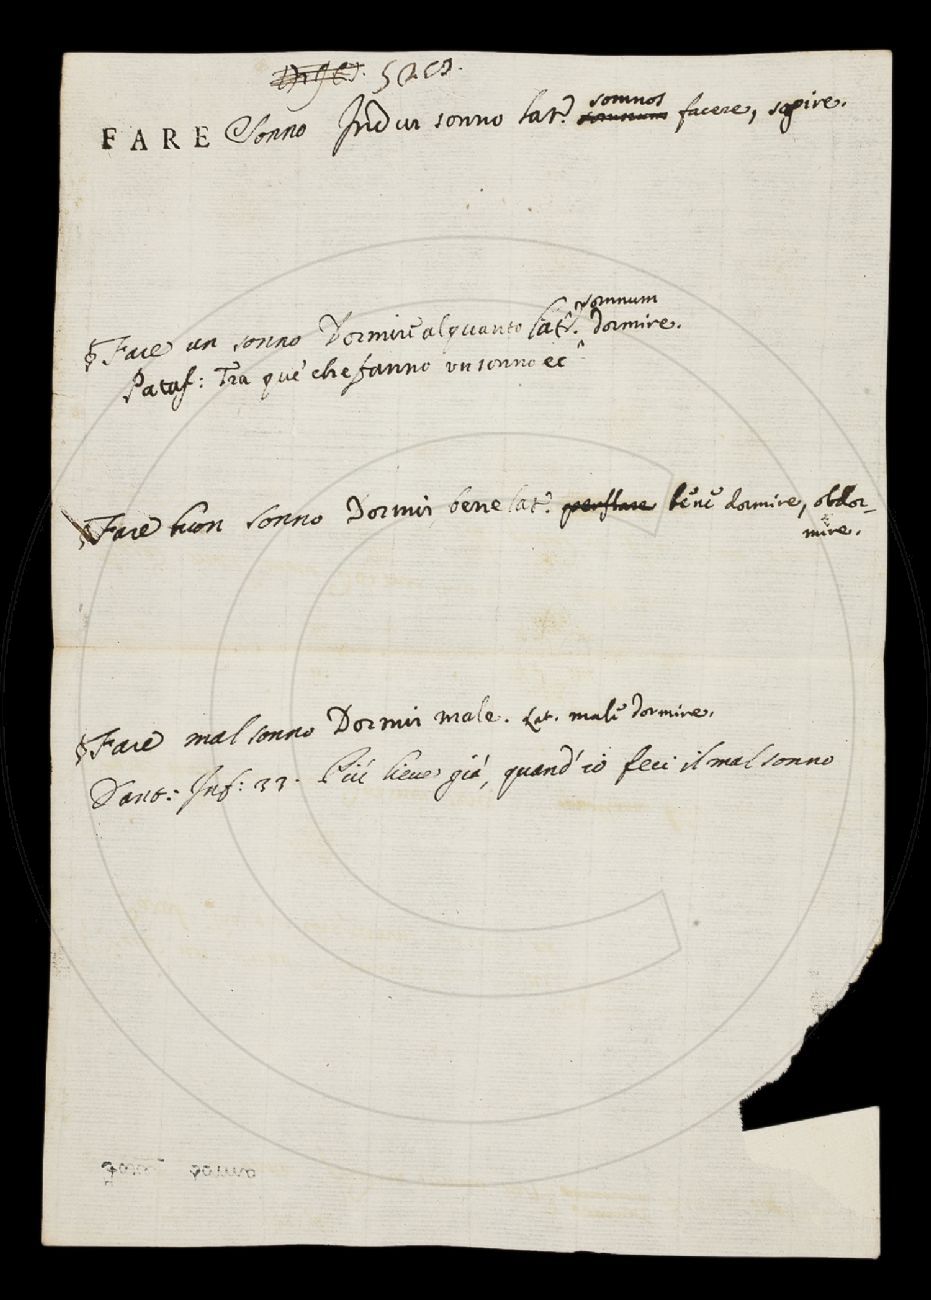 FARE Sonno Indur sonno lat. somnos facere, sopire.
§ Fare un sonno Dormire alquanto lat. somnum dormire.
Pataf: Tra que che fanno un sonno ec
§ Fare buon sonno Dormir bene lat. bene dormire, obdor-
mire.
§ Fare mal sonno Dormir male. Lat. male dormire.
Dant: Inf: 33. Piú lieve giá, quand'io feci il mal sonno